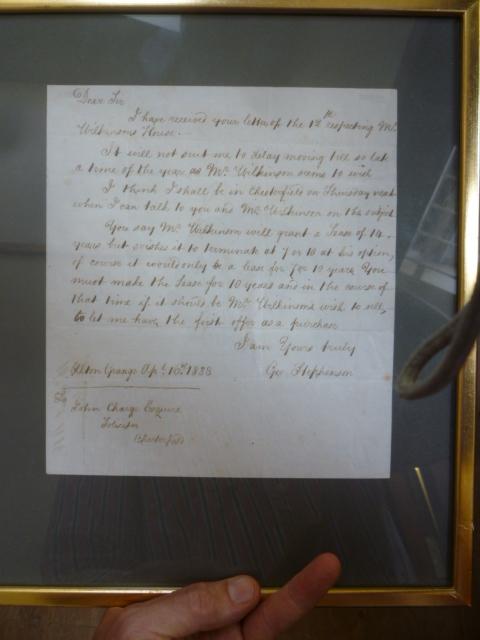 Dear Sir
I have received your letter of the 12th respecting Mr
Wilkinsons House.
It will not suit me to delay moving till so late
a time of the year as Mr Wilkinson seems to wish
I think I shall be in Chesterfield on Thursday next
when I can talk to you and Mr Wilkinson on the subject
You say Mr Wilkinson will grant a Lease of 14
years but wishes it to terminate at 7 or 10 at his option,
of course it would only be a lease for 7 or 10 years. You
must make the Lease for 10 years and in the course of
that time if it should be Mr Wilkinson's wish to sell,
to let me have the first offer as a purchase
I am Yours truly
Geo. Stephenson
Alton Grange Apl 16th 1838
John Charge Esquire
Solicitor
Chesterfield